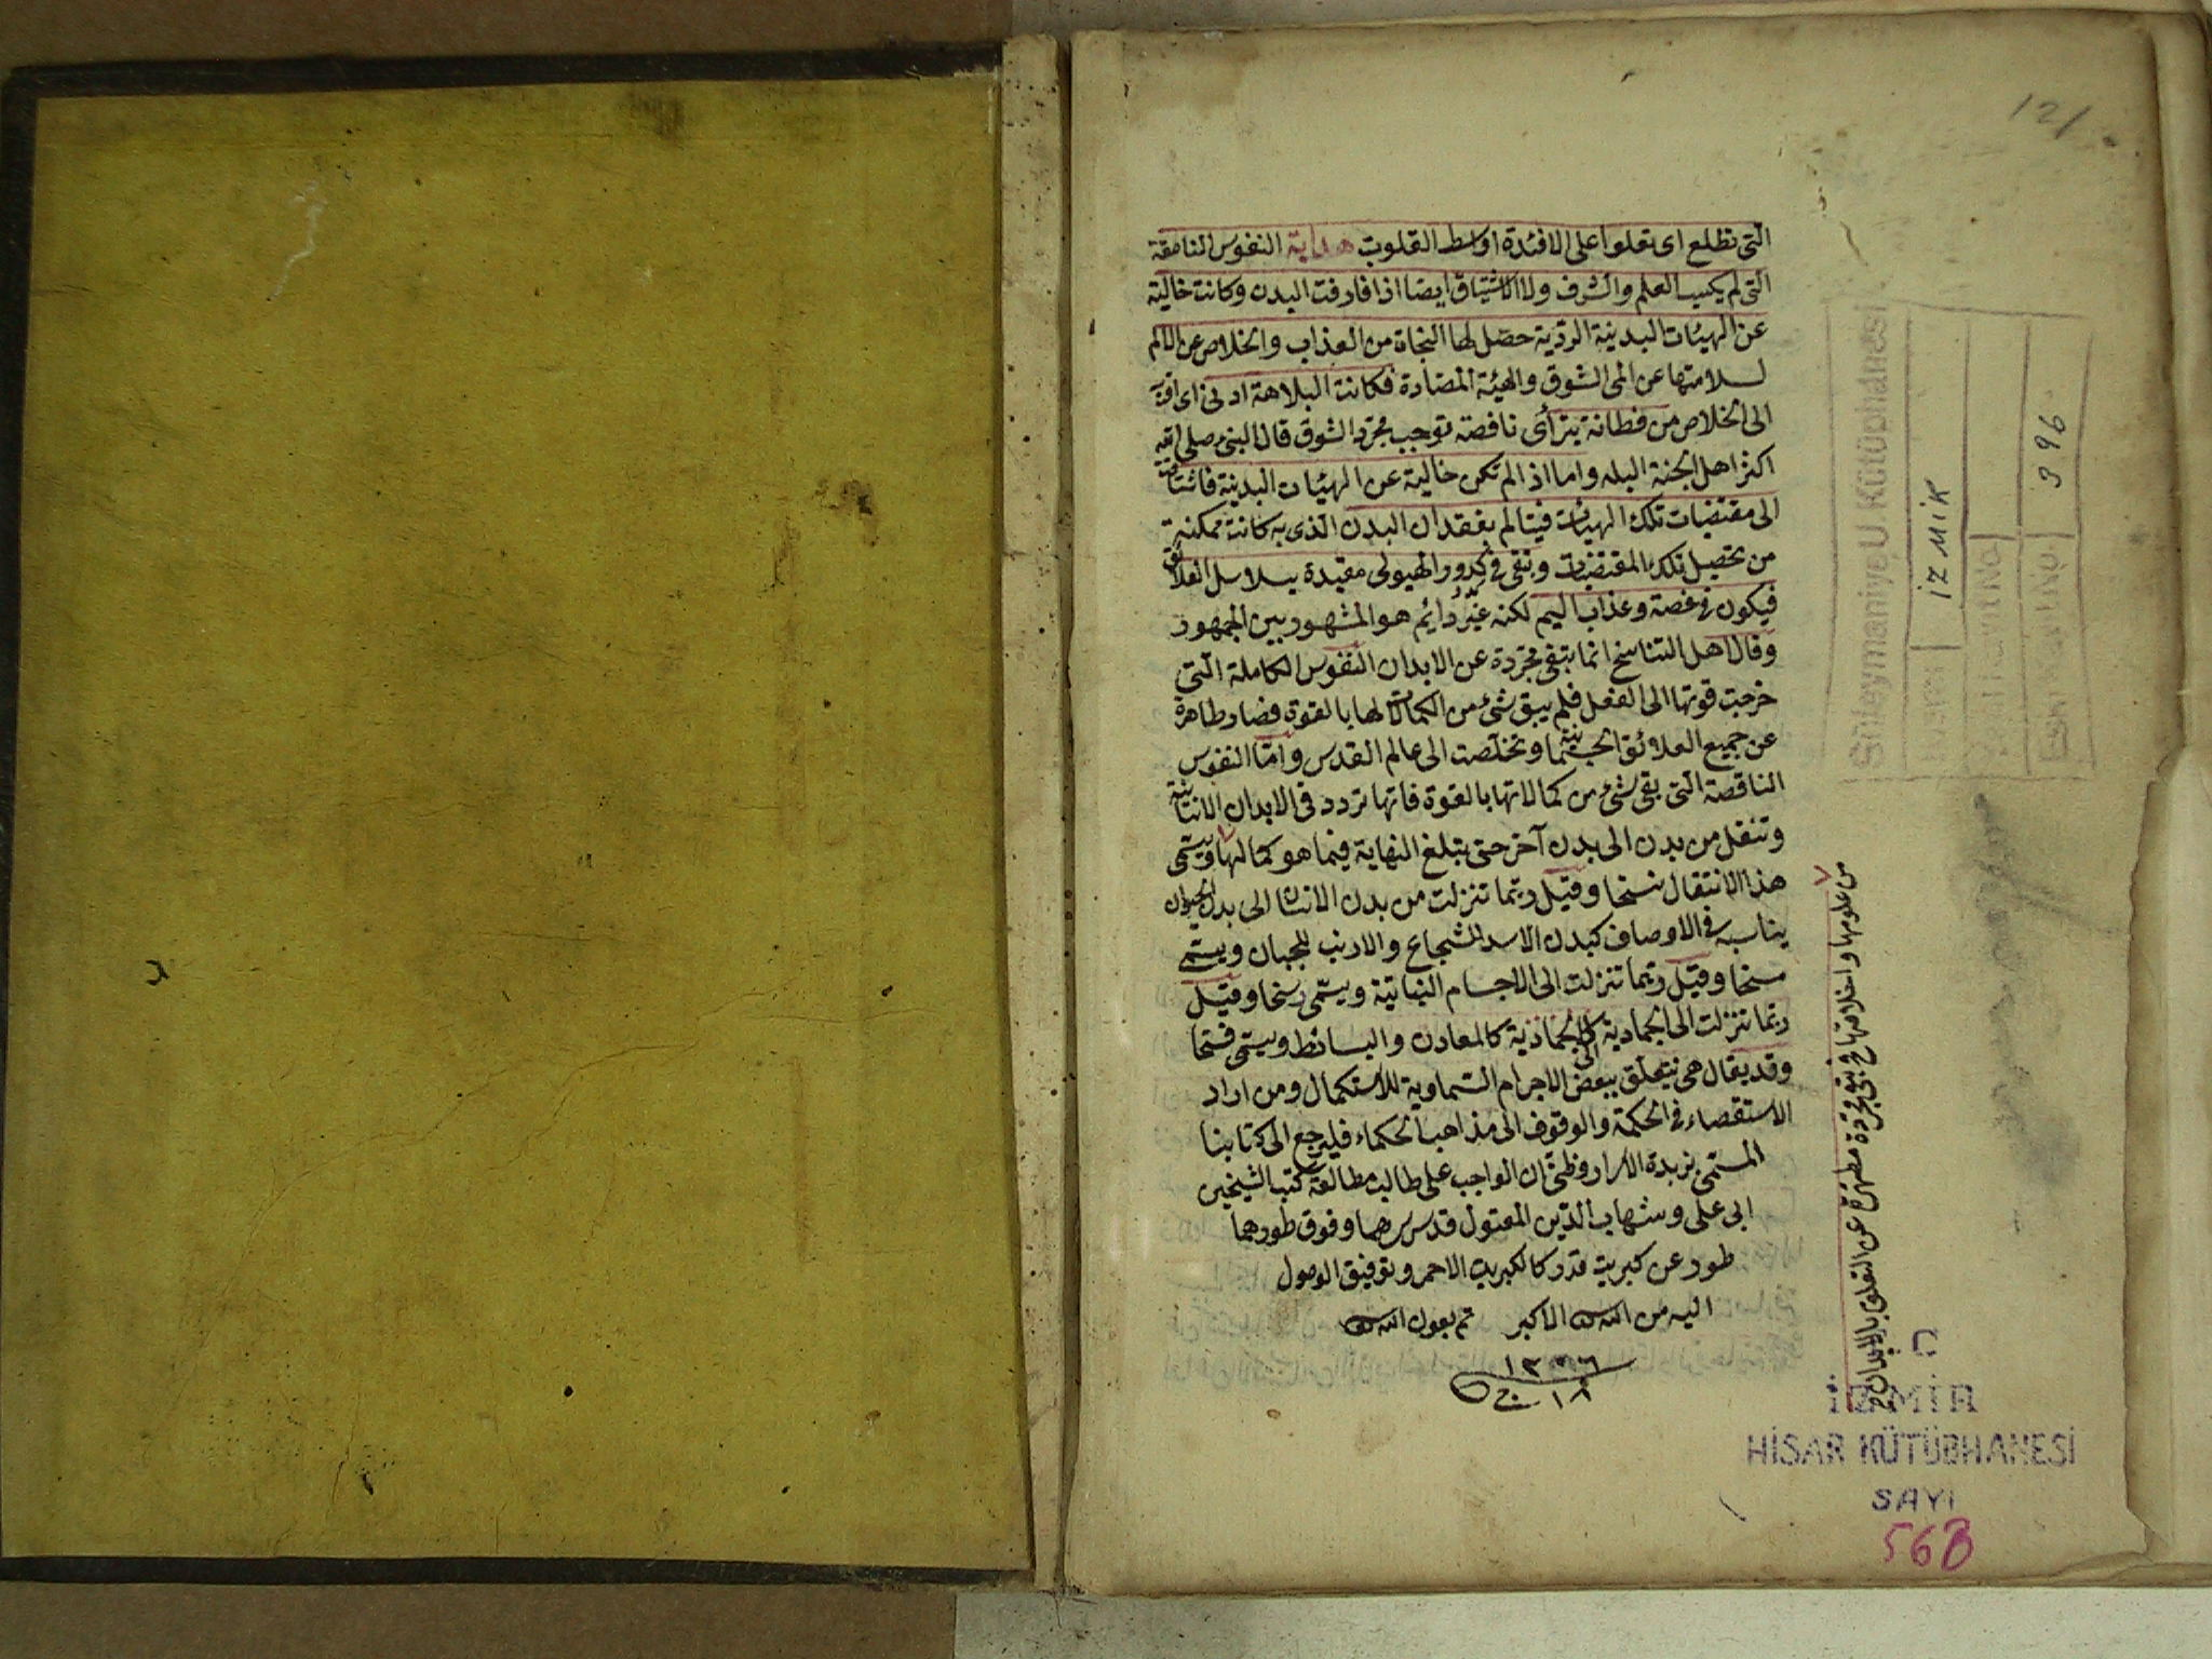 121
التى تطلع اى تعلوا على الافئدة اواسط القلوب هداية النفوس الناقصة
التى لم يكسب العلم والشرف ولا الاشتياق ايضا اذا فارقت البدن وكانت خالية
عن الهيئات البدنية الردّية حصّل لها النجاة من العذاب والخلاص عن الالم
لسلامتها عن المى الشوق والهيئة المضادة فكانت البلاهة ادنى اى اقرب
الى الخلاص من فطانة بترأى ناقصة توجب مجرّد الشوق قال النبى صلى الله
اكثر اهل الجنة البله واما اذا لم تكن خالية عن الهيئات البدنية فاشتاقت
الى مقتضيات تلك الهيئات فيتالم بفقدان البدن الذى به كانت ممكنة
من تحصيل تلك المقتضيات وتبقى فى كدور الهيولى مقيدة بسلاسل العلائق
فيكون فى غصة وعذاب اليم لكنه غير دائم هو المشهور بين الجمهور
وقال اهل التناسخ انما يتبقى مجرّدة عن الابدان النفوس الكاملة التى
خرجت قوتها الى الفعل فلم يبق شئ من الكمالات لها بالقوة فصار طاهرة
عن جميع العلائق الجسمانية وتخلّصت الى عالم القدس وامّا النفوس
الناقصة التى بقى شئ من كمالاتها بالقوة فانها تردد فى الابدان الانسانية
وتنقل من بدن الى بدن آخر حتى يتبلغ النهاية فيما هو كمالها ويسمّى
هذا الانتقال نسخا وقيل ربّما تنزلت من بدن الانسان الى بدن الحيوان
يناسبه فى الاوصاف كبدن الاسد للشجاع والارنب للجبان ويسمّى
مسخا وقيل ربّما تنزلت الى الاجسام النباتية ويسمّى رسخا وقيل
ربّما تنزلت الى الجمادية كالمعادن والبسائط ويسمّى فسخا
وقد يقال هى يتعلّق ببعض الاجرام السّماوية للاستكمال ومن اراد
الاستقصاء فى الحكمة والوقوف الى مذاهب الحكماء فليرجع الى كتابنا
المسمّى بزبدة الاسرار وظنّى ان الواجب على طالب مطالعة كتب الشيخين
ابى على وشهاب الدّين المقتول قدس سرهما وفوق طورهما
طور عن كبريت قدر كالكبريت الاحمر وتوفيق الوصول
اليه من الله الاكبر تم بعون الله
١٨
من علومها واخلاقها فيبقى مجرّدة مطهّرة عن التعلق بالابدان
Süleymaniye U Kütüphanesi
İZMİR
396
İZMİR
HİSAR KÜTÜBHANESİ
SAYI
568